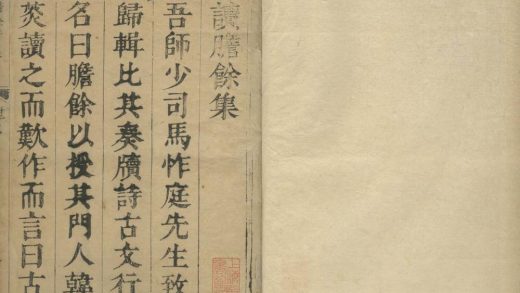 讀膽餘集
吾師少司馬怍庭先生致
歸輯比其奏牘詩古文行
名曰膽餘以授其門人韓
炎讀之而歎作而言曰古